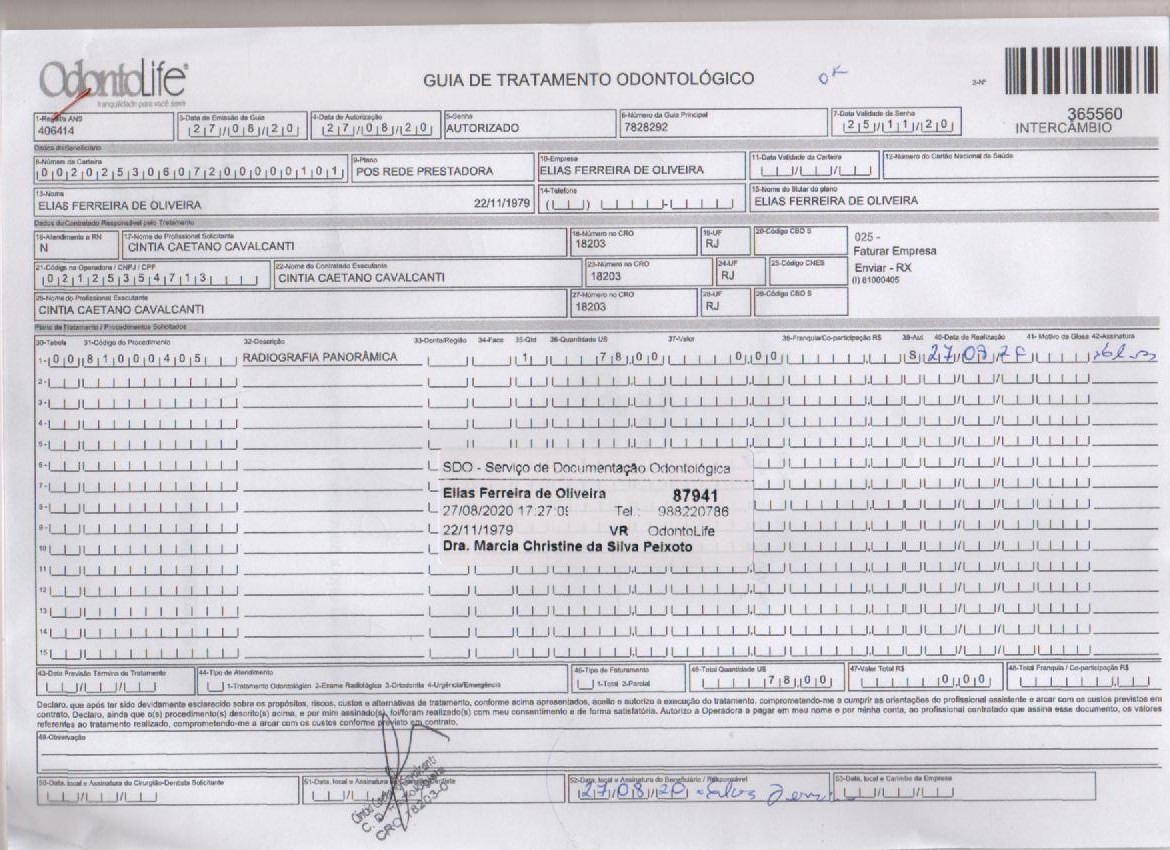 OdontoLife
tranquilidade para você sorrir
GUIA DE TRATAMENTO ODONTOLÓGICO
OK
2-Nº
365560
INTERCÂMBIO
1-Registro ANS
406414
3-Data de Emissão da Guia
27/08/20
4-Data de Autorização
27/08/20
5-Senha
AUTORIZADO
6-Número da Guia Principal
7828292
7-Data Validade da Senha
25/11/20
Dados do Beneficiário
8-Número da Carteira
00202530607200000101
9-Plano
POS REDE PRESTADORA
10-Empresa
ELIAS FERREIRA DE OLIVEIRA
11-Data Validade da Carteira
12-Número do Cartão Nacional de Saúde
13-Nome
ELIAS FERREIRA DE OLIVEIRA 22/11/1979
14-Telefone
15-Nome do titular do plano
ELIAS FERREIRA DE OLIVEIRA
Dados do Contratado Responsável pelo Tratamento
16-Atendimento a RN
N
17-Nome do Profissional Solicitante
CINTIA CAETANO CAVALCANTI
18-Número no CRO
18203
19-UF
RJ
20-Código CBO S
025 -
Faturar Empresa
Enviar - RX
(I) 81000405
21-Código na Operadora / CNPJ / CPF
02125354713
22-Nome do Contratado Executante
CINTIA CAETANO CAVALCANTI
23-Número no CRO
18203
24-UF
RJ
25-Código CNES
26-Nome do Profissional Executante
CINTIA CAETANO CAVALCANTI
27-Número no CRO
18203
28-UF
RJ
29-Código CBO S
Plano de Tratamento / Procedimentos Solicitados
30-Tabela 31-Código do Procedimento 32-Descrição 33-Dente/Região 34-Face 35-Qtd 36-Quantidade US 37-Valor 38-Franquia/Co-participação R$ 39-Aut 40-Data de Realização 41- Motivo da Glosa 42-Assinatura
1- 00 81000405 RADIOGRAFIA PANORÂMICA 1 78,00 0,00 S 27/08/20
2-
3-
4-
5-
6-
7-
8-
9-
10
11
12
13
14
15
SDO - Serviço de Documentação Odontológica
Elias Ferreira de Oliveira 87941
27/08/2020 17:27:09 Tel.: 988220786
22/11/1979 VR OdontoLife
Dra. Marcia Christine da Silva Peixoto
43-Data Previsão Término do Tratamento
44-Tipo de Atendimento
1-Tratamento Odontológico 2-Exame Radiológico 3-Ortodontia 4-Urgência/Emergência
45-Tipo de Faturamento
1-Total 2-Parcial
46-Total Quantidade US
78,00
47-Valor Total R$
0,00
48-Total Franquia / Co-participação R$
Declaro, que após ter sido devidamente esclarecido sobre os propósitos, riscos, custos e alternativas de tratamento, conforme acima apresentados, aceito e autorizo a execução do tratamento, comprometendo-me a cumprir as orientações do profissional assistente e arcar com os custos previstos em
contrato, Declaro, ainda que o(s) procedimento(s) descrito(s) acima, e por mim assinado(s) foi/foram realizado(s) com meu consentimento e de forma satisfatória. Autorizo a Operadora a pagar em meu nome e por minha conta, ao profissional contratado que assina esse documento, os valores
referentes ao tratamento realizado, comprometendo-me a arcar com os custos conforme previsto em contrato.
49-Observação
50-Data, local e Assinatura do Cirurgião-Dentista Solicitante
51-Data, local e Assinatura
CRO 18203-
52-Data, local e Assinatura do Beneficiário / Responsável
27/08/20
53-Data, local e Carimbo da Empresa